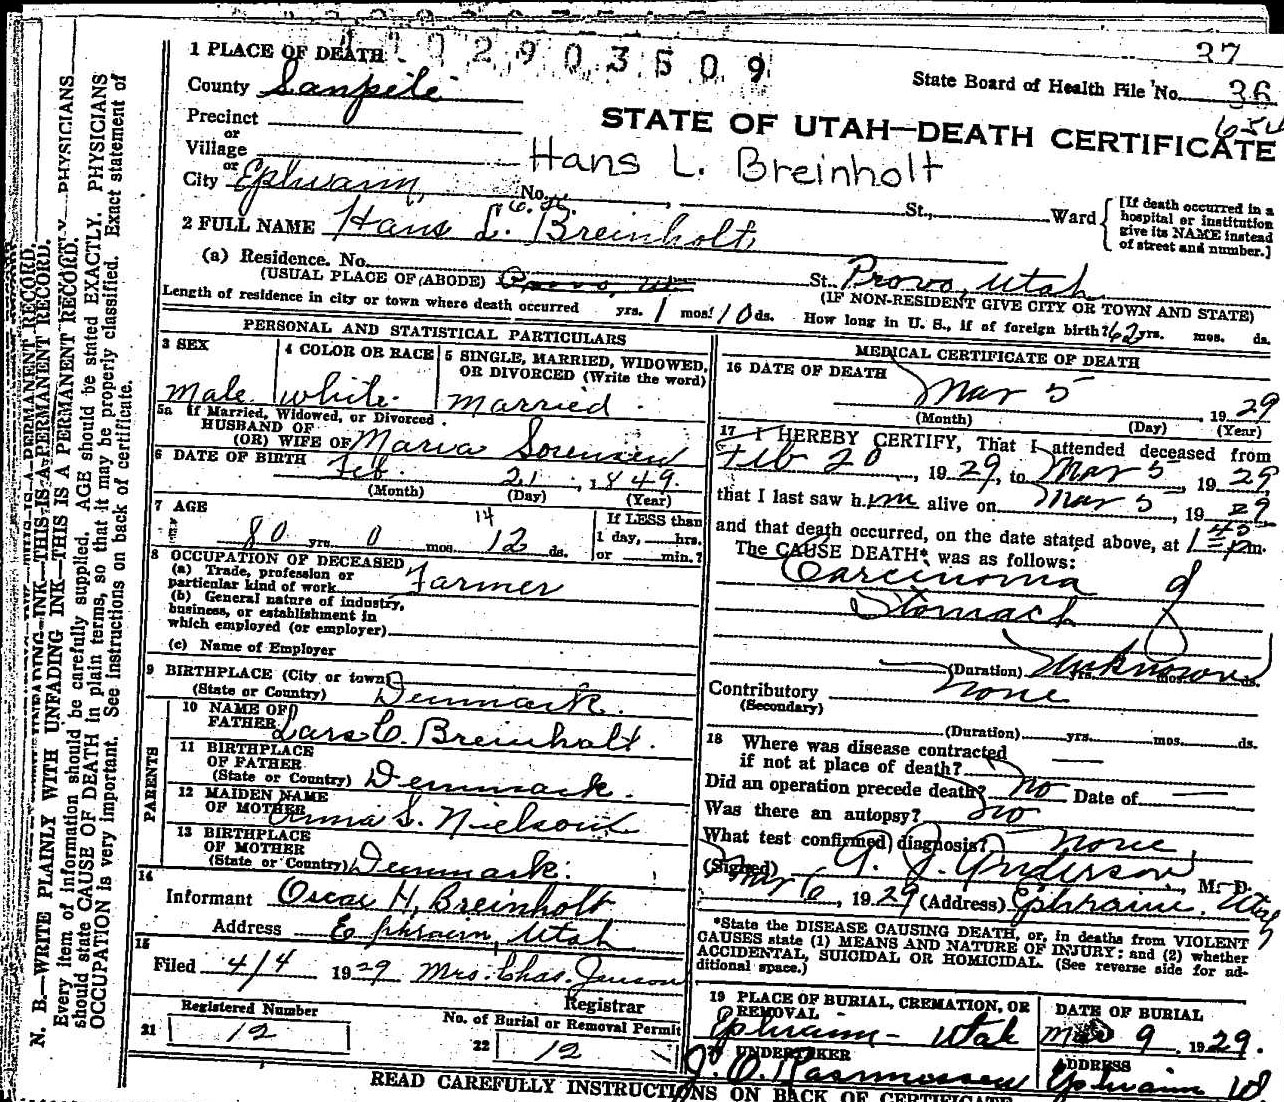 37
1 PLACE OF DEATH 2903509
State Board of Health File No. 36
County Sanpete
654
STATE OF UTAH—DEATH CERTIFICATE
Precinct
or
Village
or
Hans L. Breinholt
City Ephraim, No. St., Ward
[If death occurred in a hospital or institution give its NAME instead of street and number.]
2 FULL NAME Hans L. Breinholt
(a) Residence. No. St. Provo, Utah
(USUAL PLACE OF ABODE) Provo, Ut
(IF NON-RESIDENT GIVE CITY OR TOWN AND STATE)
Length of residence in city or town where death occurred yrs. 1 mos. 10 ds. How long in U. S., if of foreign birth? 62 yrs. mos. ds.
PERSONAL AND STATISTICAL PARTICULARS
3 SEX
Male
4 COLOR OR RACE
white
5 SINGLE, MARRIED, WIDOWED, OR DIVORCED (Write the word)
married
5a If Married, Widowed, or Divorced
HUSBAND OF
(OR) WIFE OF Maria Sorensen
6 DATE OF BIRTH Feb. 21, 1849.
(Month) (Day) (Year)
7 AGE
80 yrs. 0 mos. 14 12 ds.
If LESS than
1 day, hrs.
or min.?
8 OCCUPATION OF DECEASED
(a) Trade, profession or
particular kind of work Farmer
(b) General nature of industry,
business, or establishment in
which employed (or employer)
(c) Name of Employer
9 BIRTHPLACE (City or town)
(State or Country) Denmark.
PARENTS
10 NAME OF
FATHER Lars C. Breinholt.
11 BIRTHPLACE
OF FATHER
(State or Country) Denmark.
12 MAIDEN NAME
OF MOTHER S. Nielson
13 BIRTHPLACE
OF MOTHER
(State or Country) Denmark.
14
Informant Oscar H. Breinholt
Address Ephraim, Utah
15
Filed 4/4 1929 Mrs. Chas. Jenson
Registrar
Registered Number
21 12
No. of Burial or Removal Permit
22 12
MEDICAL CERTIFICATE OF DEATH
16 DATE OF DEATH
Mar 5 1929
(Month) (Day) (Year)
17 I HEREBY CERTIFY, That I attended deceased from
Feb 20, 1929, to Mar 5, 1929
that I last saw him alive on Mar 5, 1929
and that death occurred, on the date stated above, at 1 45 pm.
The CAUSE DEATH* was as follows:
Carcinoma of
Stomach
(Duration) Unknown yrs. mos. ds.
Contributory none
(Secondary)
(Duration) yrs. mos. ds.
18 Where was disease contracted
if not at place of death?
Did an operation precede death? No Date of
Was there an autopsy? no
What test confirmed diagnosis? none
(Signed) A. J. Anderson, M. D.
Mar 6, 1929 (Address) Ephraim, Utah
*State the DISEASE CAUSING DEATH, or, in deaths from VIOLENT
CAUSES state (1) MEANS AND NATURE OF INJURY; and (2) whether
ACCIDENTAL, SUICIDAL OR HOMICIDAL. (See reverse side for ad-
ditional space.)
19 PLACE OF BURIAL, CREMATION, OR
REMOVAL
Ephraim - Utah
DATE OF BURIAL
Mar 9, 1929.
20 UNDERTAKER
J. O. Rasmussen
ADDRESS
Ephraim Ut.
READ CAREFULLY INSTRUCTIONS ON BACK OF CERTIFICATE
N. B.—WRITE PLAINLY WITH UNFADING INK—THIS IS A PERMANENT RECORD.
Every item of information should be carefully supplied. AGE should be stated EXACTLY. PHYSICIANS
should state CAUSE OF DEATH in plain terms, so that it may be properly classified. Exact statement of
OCCUPATION is very important. See instructions on back of certificate.